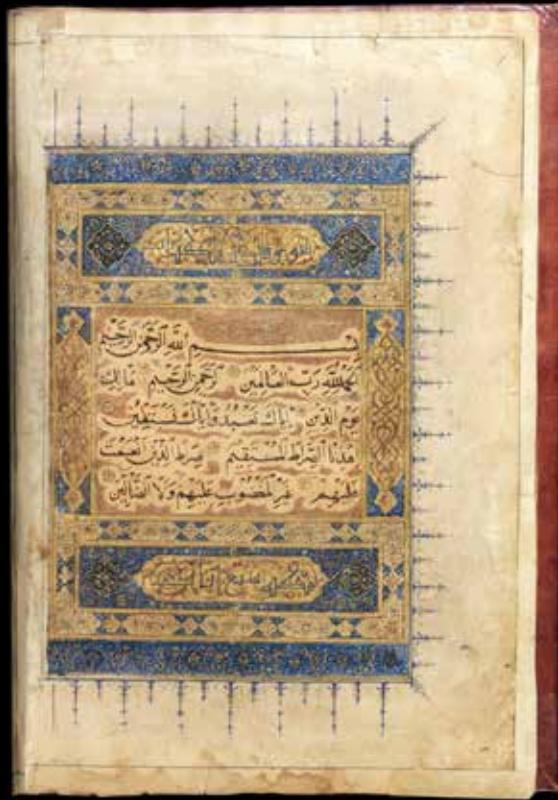 بِسْمِ اللَّهِ الرَّحْمَنِ الرَّحِيمِ
الحَمْدُ لِلَّهِ رَبِّ العَالَمِينَ الرَّحْمَنِ الرَّحِيمِ مَالِكِ
يَوْمِ الدِّينِ إِيَّاكَ نَعْبُدُ وَإِيَّاكَ نَسْتَعِينُ
اهْدِنَا الصِّرَاطَ المُسْتَقِيمَ صِرَاطَ الَّذِينَ أَنْعَمْتَ
عَلَيْهِمْ غَيْرِ المَغْضُوبِ عَلَيْهِمْ وَلَا الضَّالِّينَ